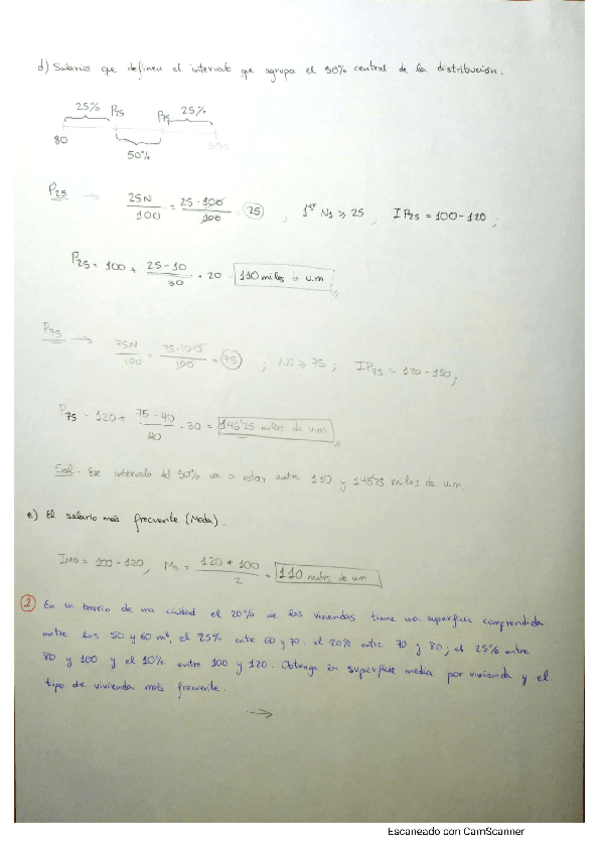 d) Salarios que definen el intervalo que agrupa el 50% central de la distribución.
25% P25 P75 25%
80 300
50%
P25 → 25N/100 = 25·100/100 = 25 , 1er Ni ≥ 25 , IP25 = 100-120 ;
P25 = 100 + 25-10/30 · 20 = 110 miles de u.m
P75 → 75N/100 = 75·100/100 = 75 ; Ni ≥ 75 ; IP75 = 120-150 ;
P75 = 120 + 75-40/40 · 30 = 146'25 miles de u.m
Sol. Ese intervalo del 50% va a estar entre 110 y 146'25 miles de u.m.
e) El salario más frecuente (Moda).
IMo = 100-120, Mo = 120+100/2 = 110 miles de u.m
2 En un barrio de una ciudad el 20% de las viviendas tiene una superficie comprendida
entre los 50 y 60 m², el 25% entre 60 y 70, el 20% entre 70 y 80; el 25% entre
80 y 100 y el 10% entre 100 y 120. Obtenga la superficie media por vivienda y el
tipo de vivienda más frecuente.
→
Escaneado con CamScanner